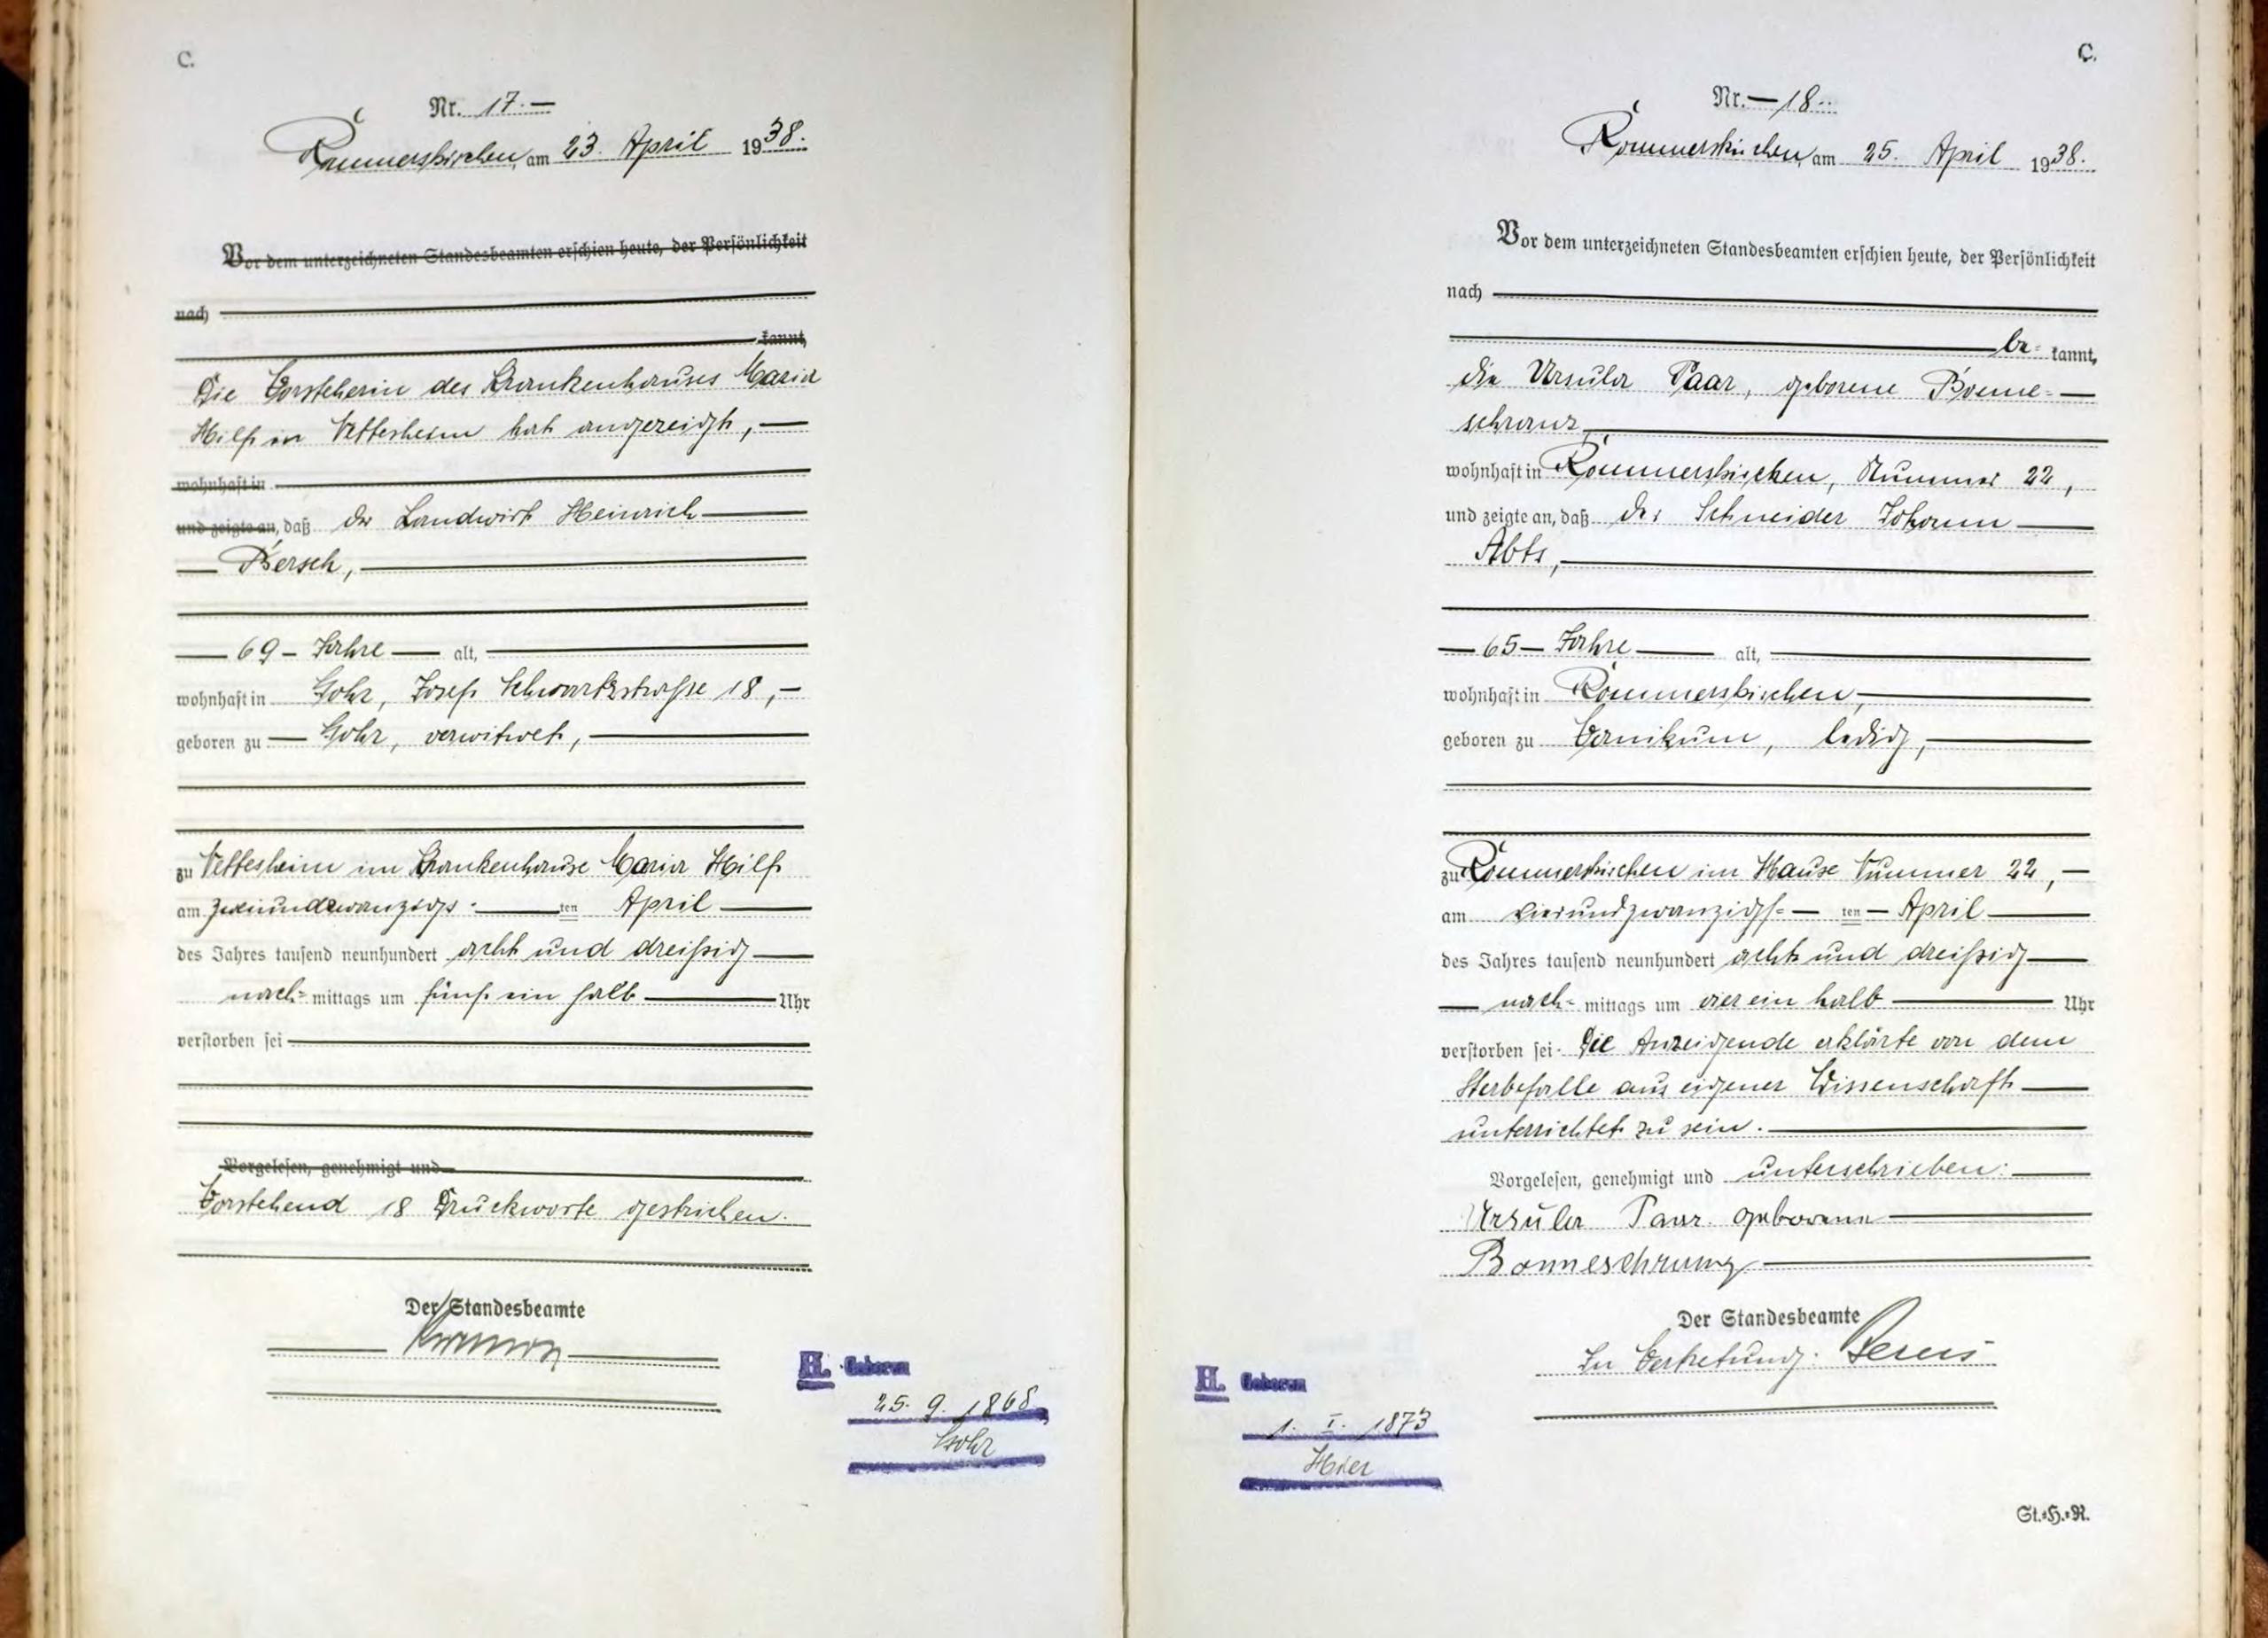 C.
Nr. 17.
Rommerskirchen, am 23. April 1938.
Vor dem unterzeichneten Standesbeamten erschien heute, der Persönlichkeit
nach
kannt,
Die Vorsteherin des Krankenhauses Maria
Hilf in Nettesheim hat angezeigt,
wohnhaft in
und zeigte an, daß der Landwirt Heinrich
Bersch,
69 Jahre alt,
wohnhaft in Gohr, Josef Schwartzstraße 18,
geboren zu Gohr, verwitwet,
zu Nettesheim im Krankenhause Maria Hilf
am zweiundzwanzigs- ten April
des Jahres tausend neunhundert acht und dreißig
nach- mittags um fünf ein halb Uhr
verstorben sei
Vorgelesen, genehmigt und
Vorstehend 18 Druckworte gestrichen.
Der Standesbeamte
H. Geboren
25. 9. 1868
Gohr
C.
Nr. 18.
Rommerskirchen, am 25. April 1938.
Vor dem unterzeichneten Standesbeamten erschien heute, der Persönlichkeit
nach
be- kannt,
die Ursula Paar, geborene Bonne-
schranz
wohnhaft in Rommerskirchen, Nummer 22,
und zeigte an, daß der Schneider Johann
Abts,
65 Jahre alt,
wohnhaft in Rommerskirchen,
geboren zu Vanikum, ledig,
zu Rommerskirchen im Hause Nummer 22,
am vierundzwanzigs- ten April
des Jahres tausend neunhundert acht und dreißig
nach- mittags um vier ein halb Uhr
verstorben sei. Die Anzeigende erklärte von dem
Sterbefalle aus eigener Wissenschaft
unterrichtet zu sein.
Vorgelesen, genehmigt und unterschrieben:
Ursula Paar geborene
Bonneschranz
Der Standesbeamte
In Vertretung:
H. Geboren
1. I. 1873
Hier
St.=H.=R.